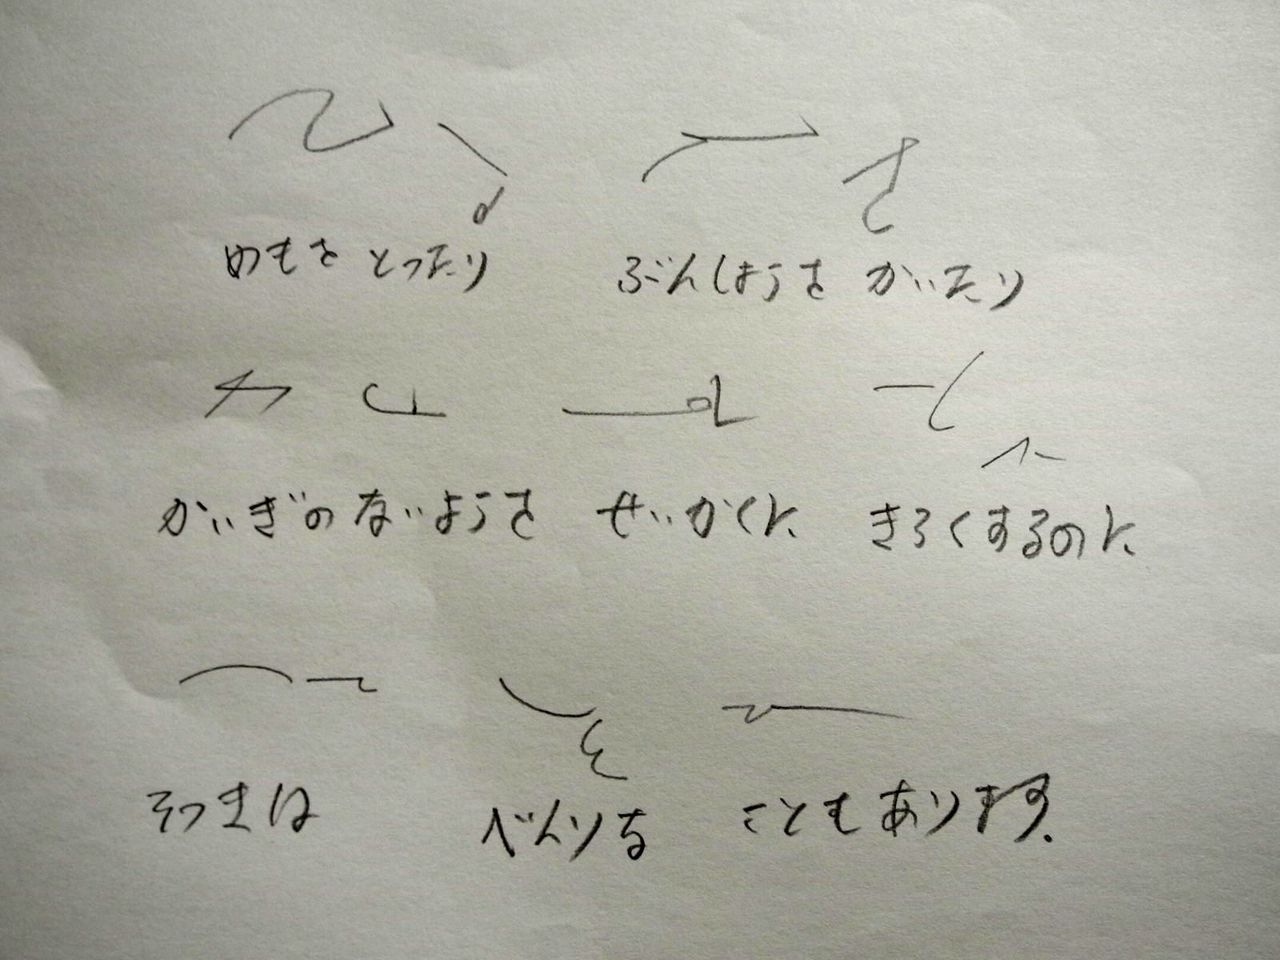 めもを とったり ぶんしょうを かいたり
かいぎの ないようを せいかくに きろくするのに
そっきは べんりな こともあります.